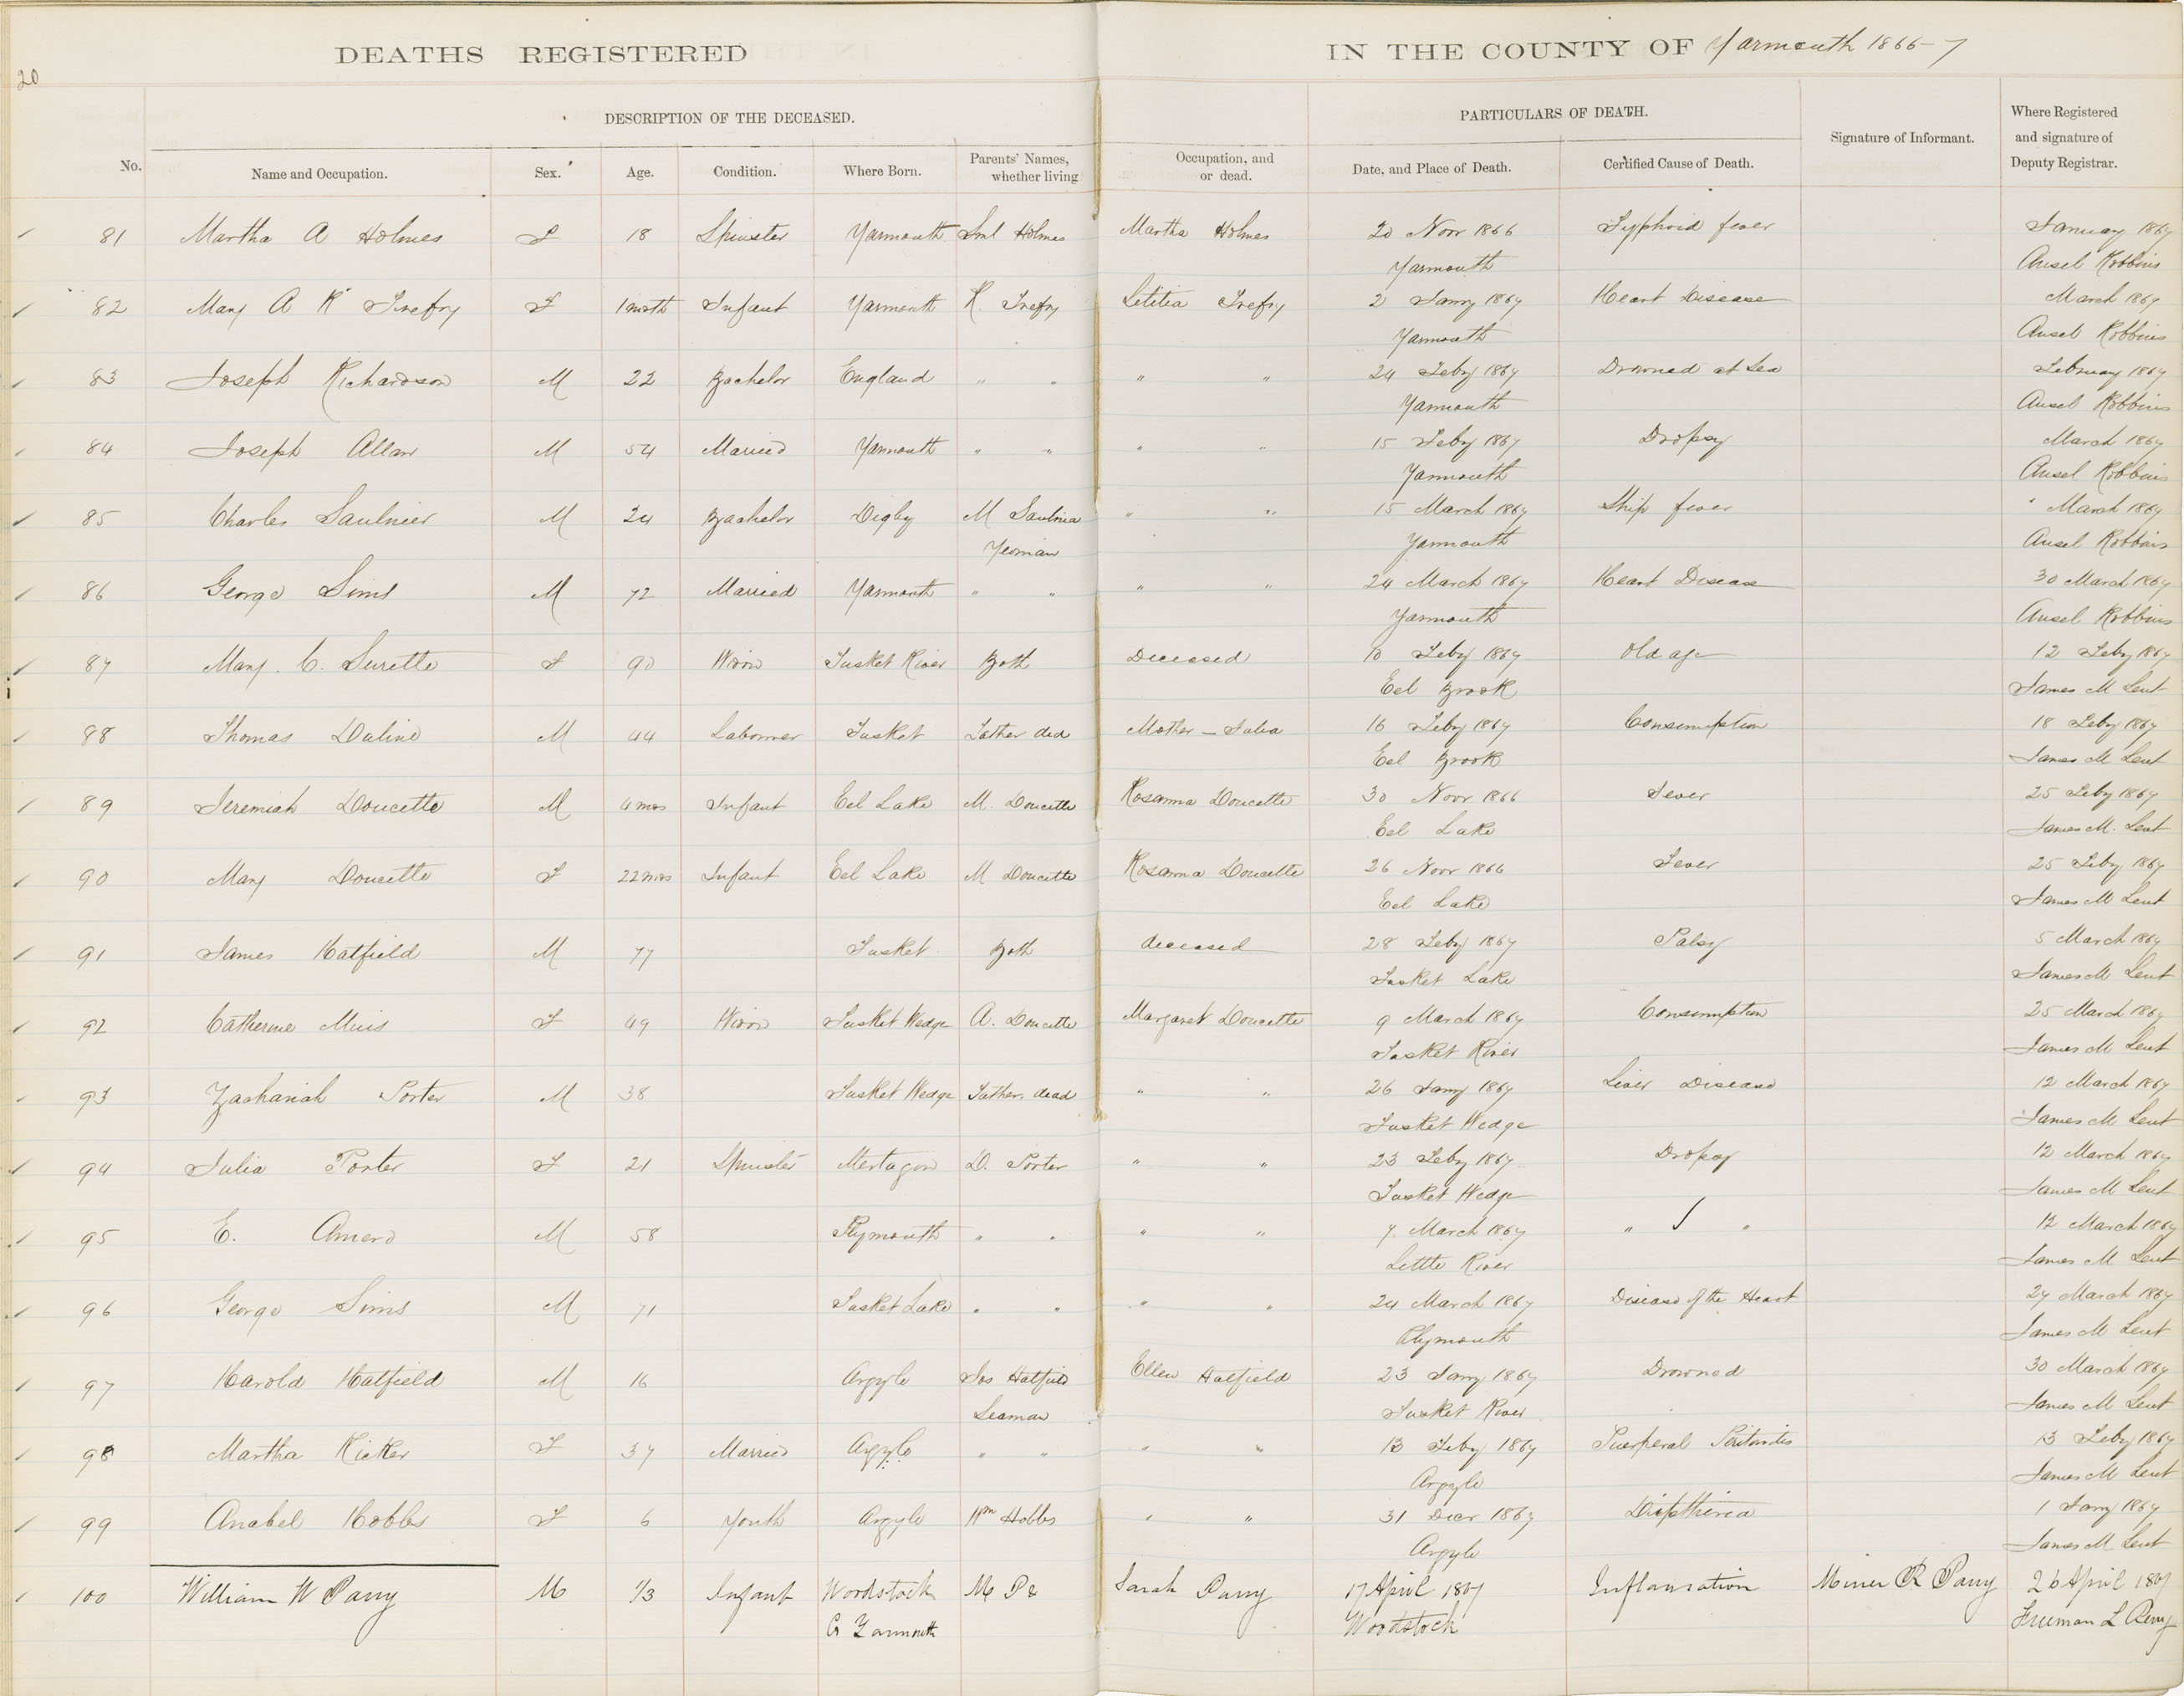 20
DEATHS REGISTERED IN THE COUNTY OF Yarmouth 1866-7
DESCRIPTION OF THE DECEASED. PARTICULARS OF DEATH.
No. Name and Occupation. Sex. Age. Condition. Where Born. Parents' Names, whether living Occupation, and or dead. Date, and Place of Death. Certified Cause of Death. Signature of Informant. Where Registered and signature of Deputy Registrar.
81 Martha A Holmes F 18 Spinster Yarmouth Saml Holmes Martha Holmes 20 Novr 1866 Typhoid fever January 1867
Yarmouth Ansel Robbins
82 Mary A K Trefry F 1 month Infant Yarmouth K. Trefry Letitia Trefry 2 Jany 1867 Heart Disease March 1867
Yarmouth Ansel Robbins
83 Joseph Richardson M 22 Bachelor England " " " " 24 Feby 1867 Drowned at Sea February 1867
Yarmouth Ansel Robbins
84 Joseph Allan M 54 Married Yarmouth " " " " 15 Feby 1867 Dropsy March 1867
Yarmouth Ansel Robbins
85 Charles Saulnier M 24 Bachelor Digby M Saulnier " " 15 March 1867 Ship fever March 1867
Yeoman Yarmouth Ansel Robbins
86 George Sims M 72 Married Yarmouth " " " " 24 March 1867 Heart Disease 30 March 1867
Yarmouth Ansel Robbins
87 Mary C. Surette F 90 Widow Tusket River Both Deceased 10 Feby 1867 Old age 12 Feby 1867
Eel Brook James M Lent
88 Thomas M 44 Labourer Tusket Father ded Mother - Julia 16 Feby 1867 Consumption 18 Feby 1867
Eel Brook James M Lent
89 Jeremiah Doucette M 4 mos Infant Eel Lake M. Doucette Rosanna Doucette 30 Novr 1866 Fever 25 Feby 1867
Eel Lake James M. Lent
90 Mary Doucette F 22 mos Infant Eel Lake M Doucette Rosanna Doucette 26 Novr 1866 Fever 25 Feby 1867
Eel Lake James M Lent
91 James Hatfield M 77 Tusket Both deceased 28 Feby 1867 Palsy 5 March 1867
Tusket Lake James M Lent
92 Catherine Muis F 49 Widow Tusket Wedge A. Doucette Margaret Doucette 9 March 1867 Consumption 25 March 1867
Tusket River James M Lent
93 Zachariah Porter M 38 Tusket Wedge Father dead " " 26 Jany 1867 Liver Disease 12 March 1867
Tusket Wedge James M Lent
94 Julia Porter F 21 Spinster Metagon D. Porter " " 23 Feby 1867 Dropsy 12 March 1867
Tusket Wedge James M Lent
95 E. Amero M 58 Plymouth " " " " 7 March 1867 " " 12 March 1867
Little River James M Lent
96 George Sims M 71 Tusket Lake " " " " 24 March 1867 Disease of the Heart 27 March 1867
Plymouth James M Lent
97 Harold Hatfield M 16 Argyle Jos Hatfield Ellen Hatfield 23 Jany 1867 Drowned 30 March 1867
Seaman Tusket River James M Lent
98 Martha Ricker F 37 Married Argyle " " " " 13 Feby 1867 Puerperal Peritonitis 13 Feby 1867
Argyle James M Lent
99 Anabel Hobbs F 6 Youth Argyle Wm Hobbs " " 31 Decr 1867 Diptheria 1 Jany 1867
Argyle James M Lent
100 William W Parry M 1/3 Infant Woodstock M P & Sarah Parry 17 April 1867 Inflamation Miner R Parry 26 April 1867
Co Yarmouth Woodstock Freeman L